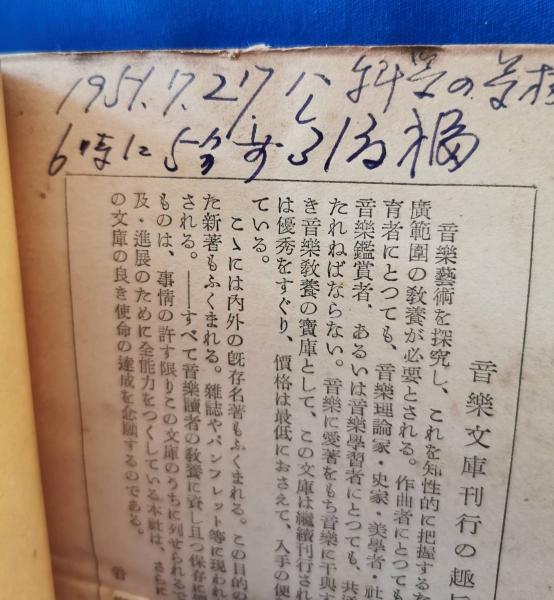 1951.7.27
科学の学校
6時に5分
音樂文庫刊行の趣旨
音樂藝術を探究し、これを知性的に把握するた
廣範圍の敎養が必要とされる。作曲者にとつても
育者にとつても、音樂理論家・史家・美學者・社
音樂鑑賞者、あるいは音樂學習者にとつても、共通
たれねばならない。音樂に愛著をもち音樂に干與す
き音樂敎養の寶庫として、この文庫は繼續刊行され
は優秀をすぐり、價格は最低におさえて、入手の便
ている。
こゝには內外の旣存名著もふくまれる。この目的の
た新著もふくまれる。雜誌やパンフレット等に現われ
される。――すべて音樂讀者の敎養に資し且つ保存に堪
ものは、事情の許す限りこの文庫のうちに列せられるで
及・進展のために全能力をつくしている本社は、さらに
の文庫の良き使命の達成を念願するのである。